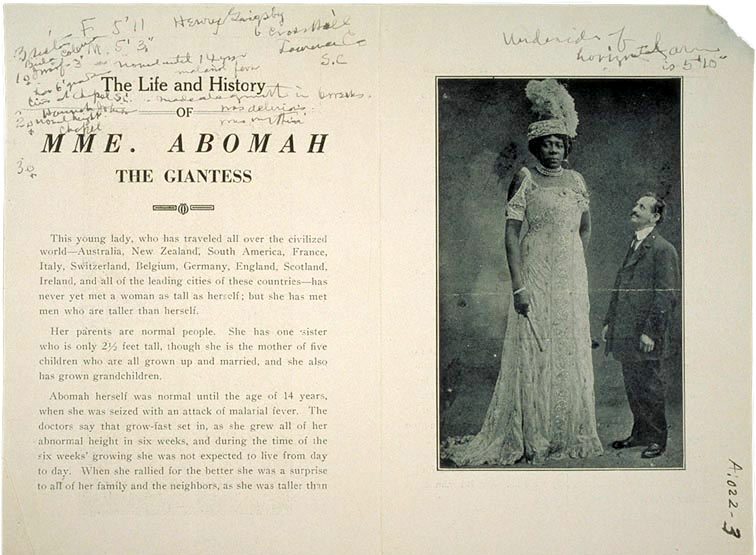 F. 5'11 Henry Grigsby
M. 5'3" 6 Cross Hill
Laurence Co
S.C
normal until 14 years
malarial fever
The Life and History
OF
was delirious
MME. ABOMAH
THE GIANTESS
This young lady, who has traveled all over the civilized
world—Australia, New Zealand, South America, France,
Italy, Switzerland, Belgium, Germany, England, Scotland,
Ireland, and all of the leading cities of these countries—has
never yet met a woman as tall as herself; but she has met
men who are taller than herself.
Her parents are normal people. She has one sister
who is only 2½ feet tall, though she is the mother of five
children who are all grown up and married, and she also
has grown grandchildren.
Abomah herself was normal until the age of 14 years,
when she was seized with an attack of malarial fever. The
doctors say that grow-fast set in, as she grew all of her
abnormal height in six weeks, and during the time of the
six weeks' growing she was not expected to live from day
to day. When she rallied for the better she was a surprise
to all of her family and the neighbors, as she was taller than
Underside of
horizontal arm
is 5'10"
A:022-3